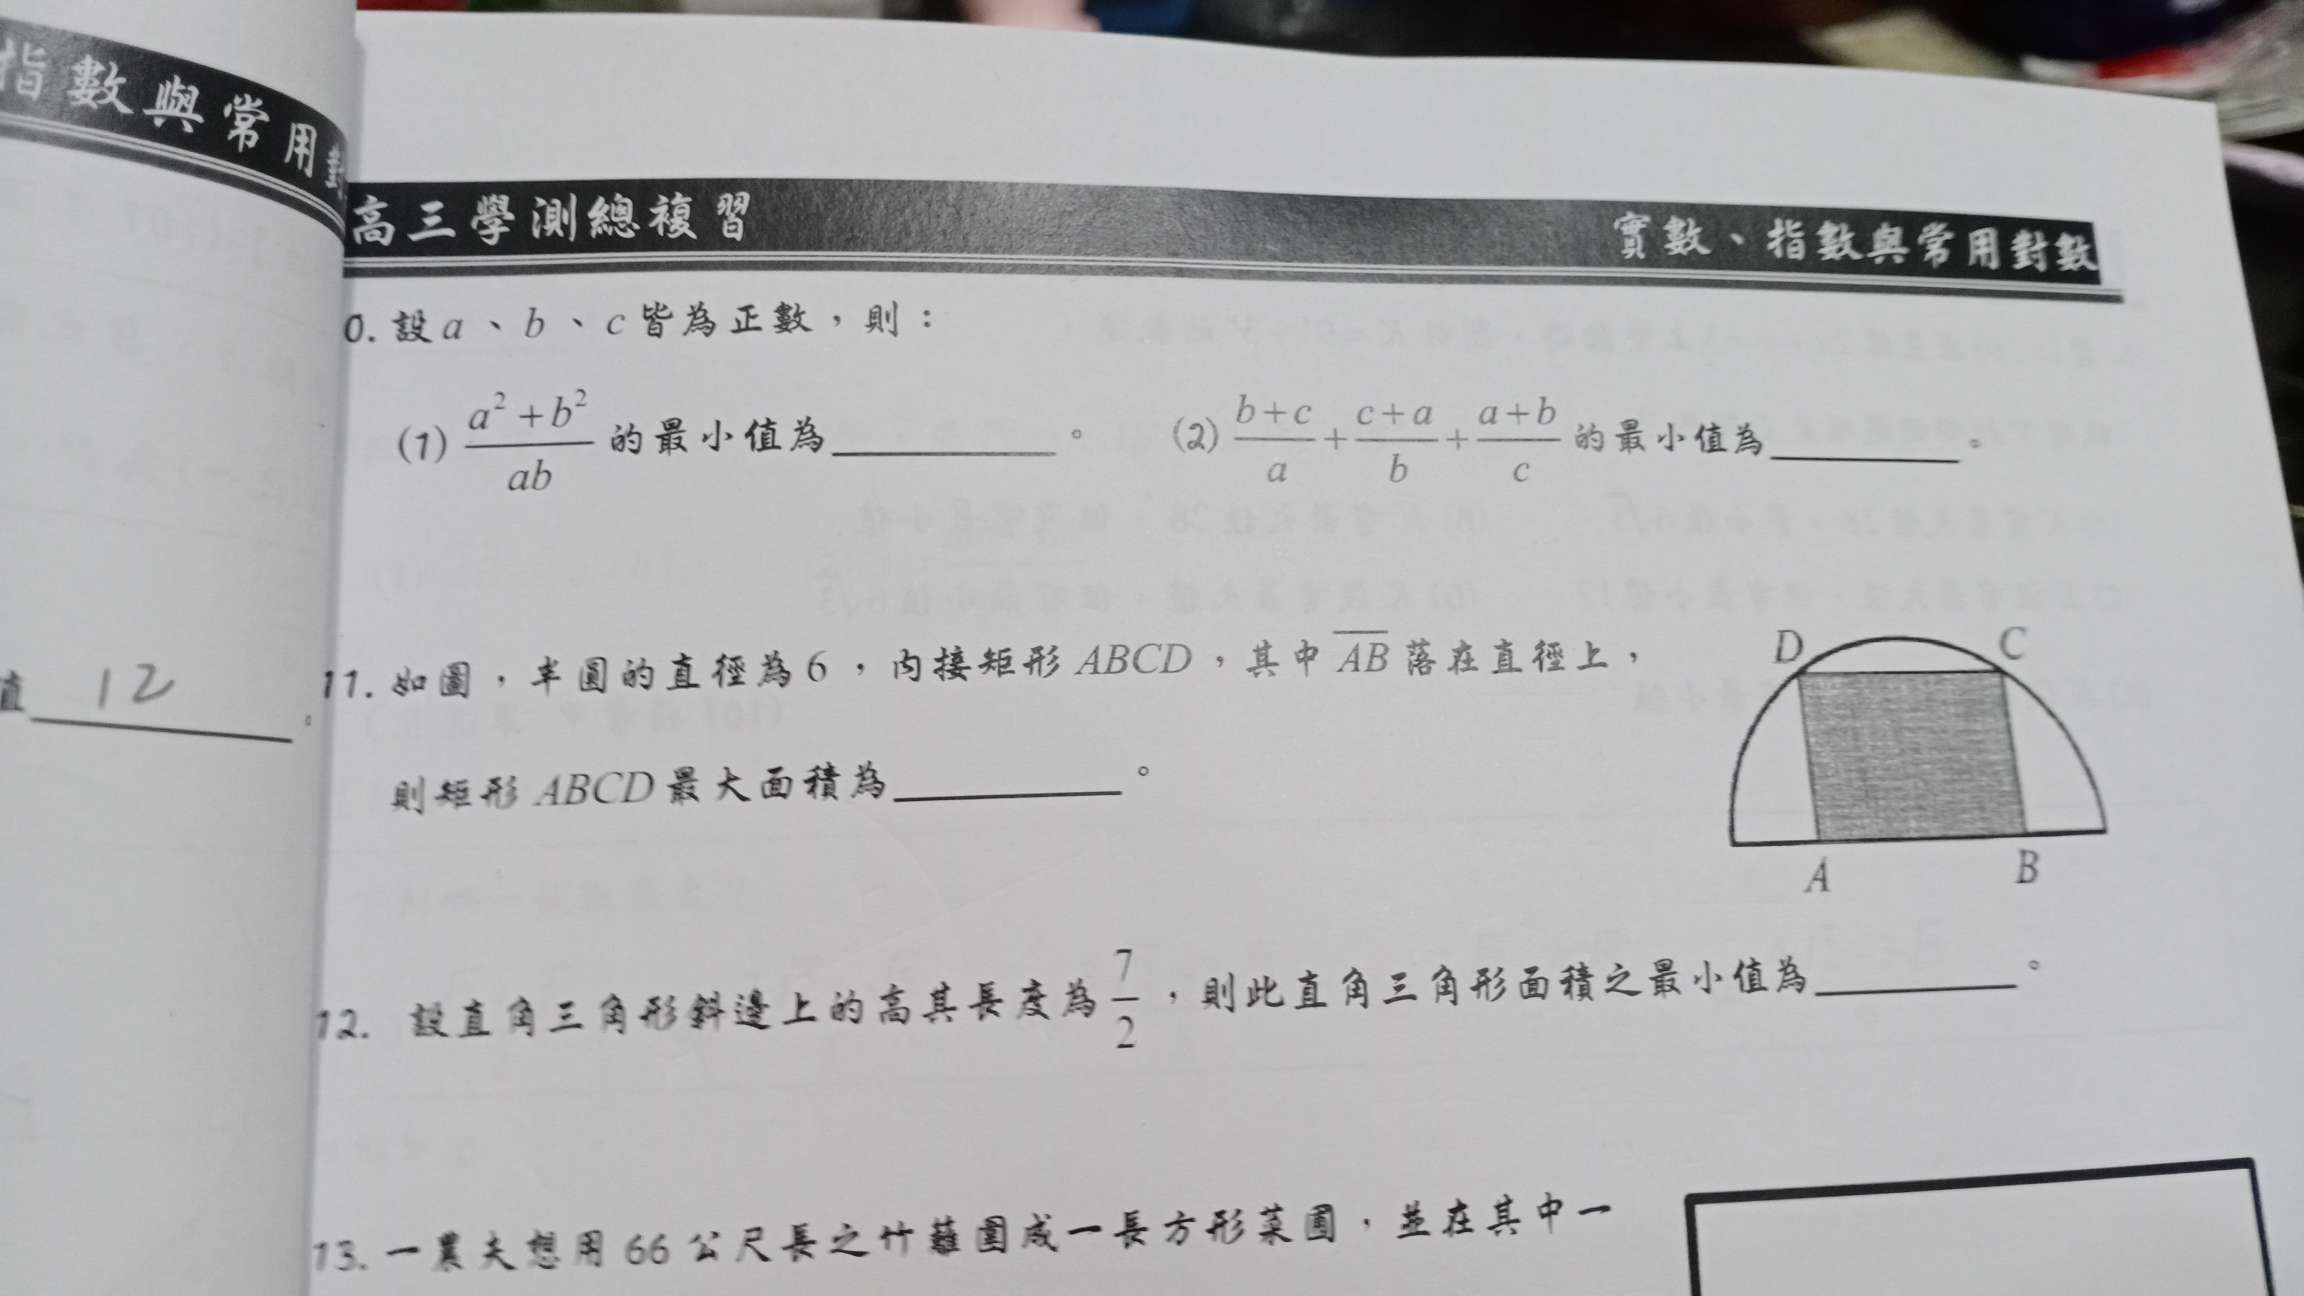 指數與常用對
高三學測總複習
實數、指數與常用對數
0. 設 a、b、c 皆為正數，則：
(1) \frac{a^2+b^2}{ab} 的最小值為________。 (2) \frac{b+c}{a}+\frac{c+a}{b}+\frac{a+b}{c} 的最小值為________。
值 12 。
11. 如圖，半圓的直徑為 6，內接矩形 ABCD，其中 \overline{AB} 落在直徑上，
則矩形 ABCD 最大面積為________。
D C
A B
12. 設直角三角形斜邊上的高其長度為 \frac{7}{2}，則此直角三角形面積之最小值為________。
13. 一農夫想用 66 公尺長之竹籬圍成一長方形菜圃，並在其中一